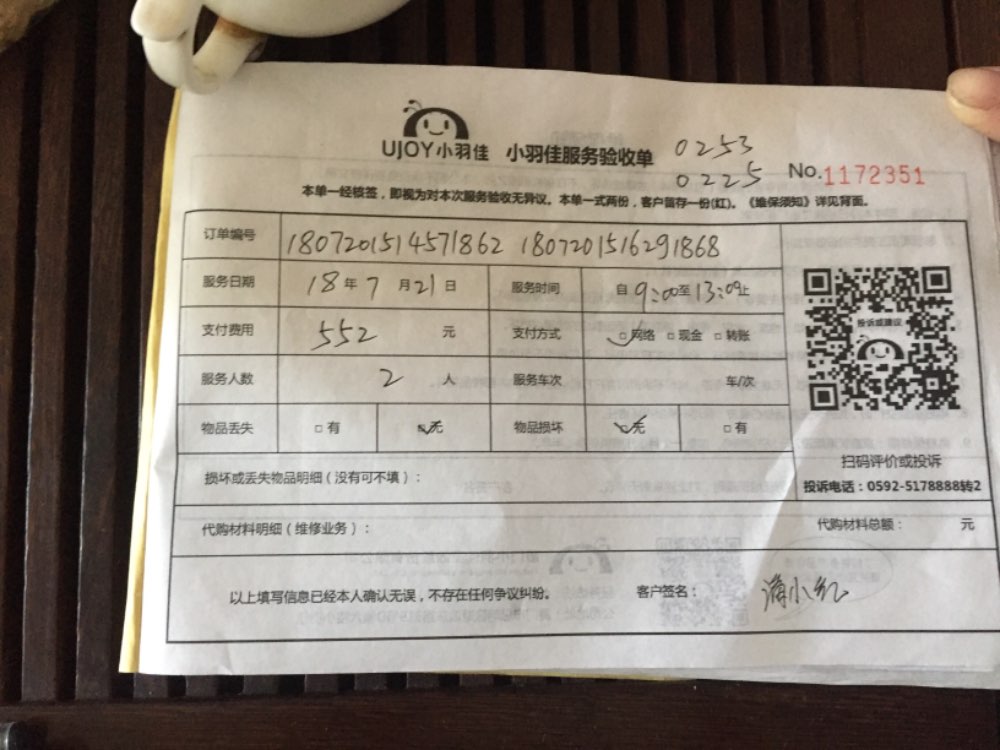 UJOY小羽佳 小羽佳服务验收单 0253
0225 No.1172351
本单一经核签，即视为对本次服务验收无异议。本单一式两份，客户留存一份(红)。《维保须知》详见背面。
订单编号 1807201514571862 1807201516291868
服务日期 18年7月21日 服务时间 自9:00至13:00止
支付费用 552 元 支付方式 □网络 □现金 □转账
服务人数 2 人 服务车次 车/次
物品丢失 □有 □无 物品损坏 □无 □有
投诉或建议
扫码评价或投诉
投诉电话：0592-5178888转2
损坏或丢失物品明细（没有可不填）：
代购材料明细（维修业务）： 代购材料总额： 元
以上填写信息已经本人确认无误，不存在任何争议纠纷。 客户签名： 小红